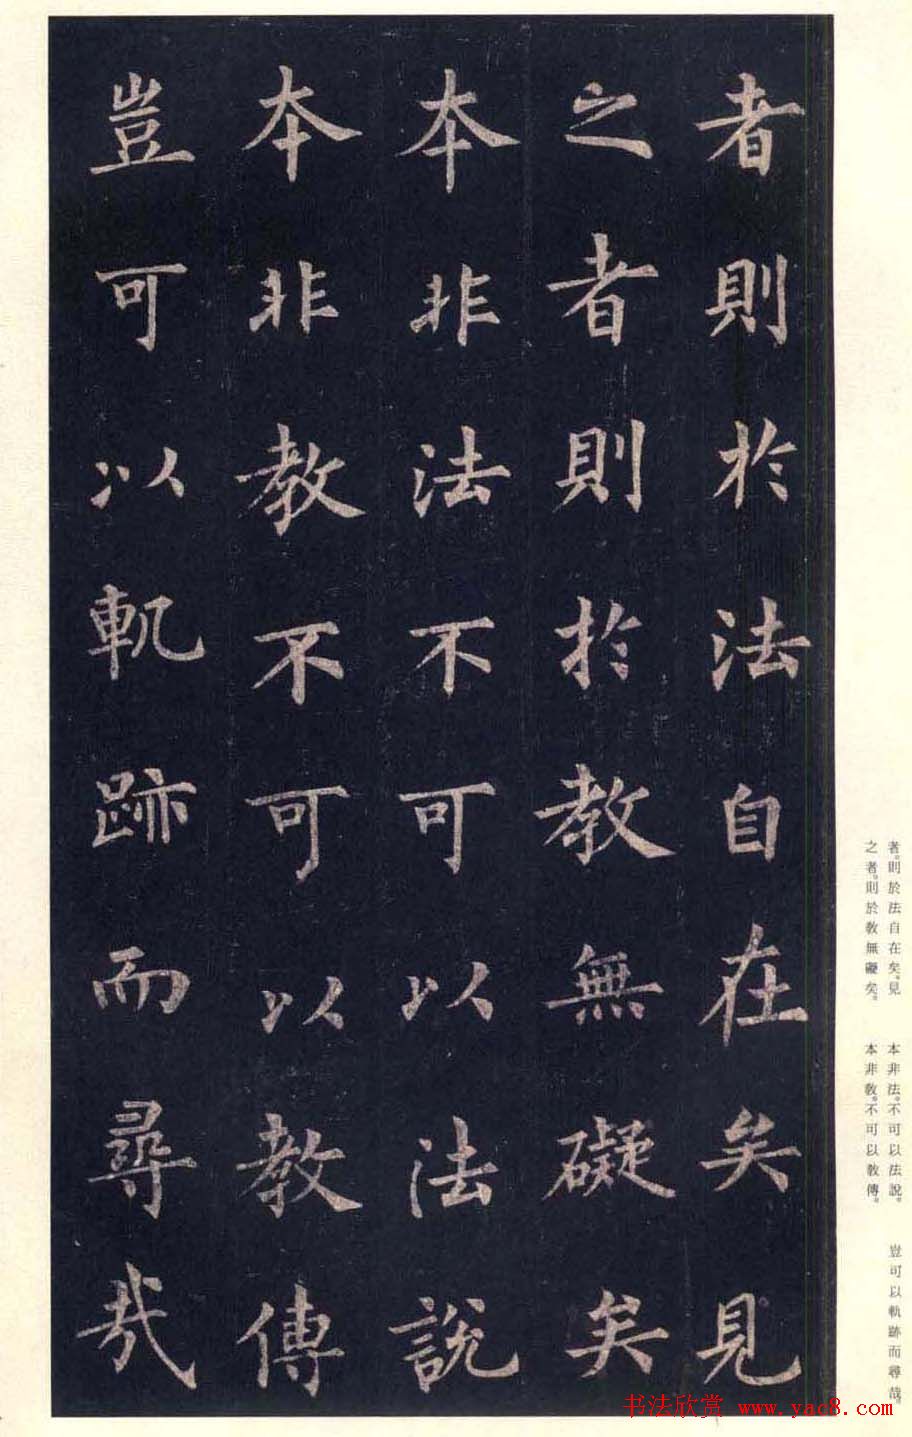 者則於法自在矣見
之者則於教無礙矣
本非法不可以法說
本非教不可以教傳
豈可以軌跡而尋哉
者。則於法自在矣。見
之者。則於教無礙矣。
本非法。不可以法說。
本非教。不可以教傳。
豈可以軌跡而尋哉。
书法欣赏 www.yac8.com